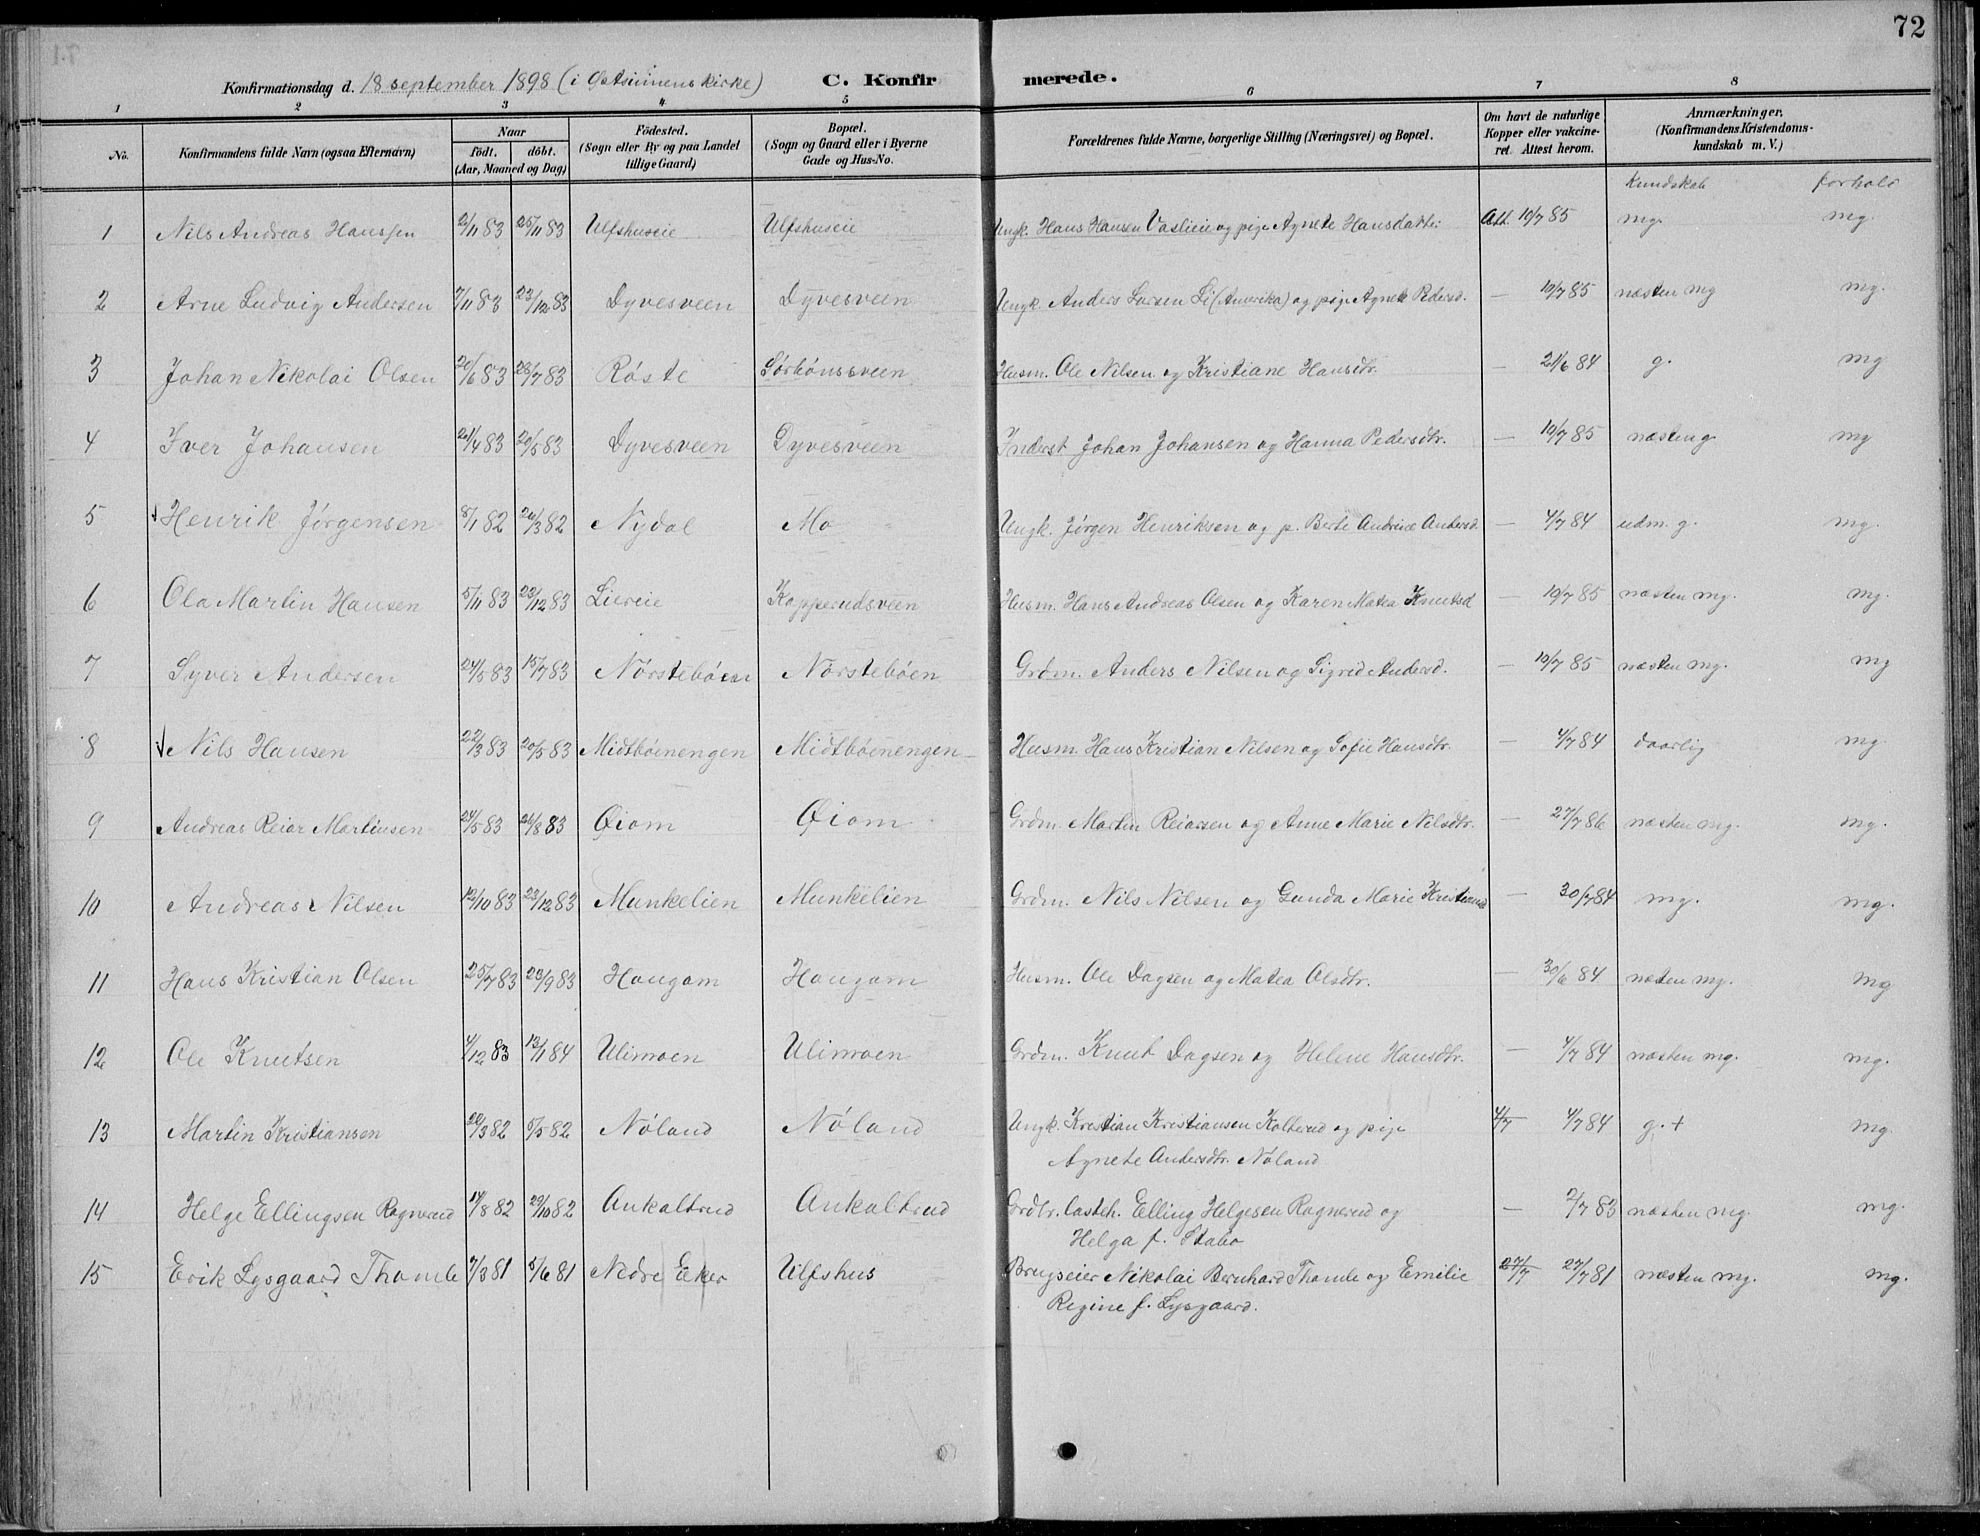 72
Konfirmationsdag d. 18 september 1898 (i Østsinnens kirke) C. Konfirmerede.
1 2 3 4 5 6 7 8
No.
Konfirmandens fulde Navn (ogsaa Efternavn)
Naar
födt. döbt.
(Aar, Maaned og Dag)
Födested.
(Sogn eller By og paa Landet
tillige Gaard)
Bopæl.
(Sogn og Gaard eller i Byerne
Gade og Hus-No.
Forældrenes fulde Navne, borgerlige Stilling (Næringsvei) og Bopæl.
Om havt de naturlige
Kopper eller vakcine-
ret. Attest herom.
Anmærkninger,
(Konfirmandens Kristendoms-
kundskab m. V.)
Kundskab forhold
1 Nils Andreas Hanssen 2/11 83 25/11 83 Ulfshuseie Ulfshuseie Ungk. Hans Hansen Vaslieie og pige Agnete Hansdatter Att. 10/7 85 mg. mg.
2 Arne Ludvig Andersen 7/11 83 23/12 83 Dyvesveen Dyvesveen Ungk. Anders Larsen Li (Amerika) og pige Agnete Pedersd. — 10/7 85 næsten mg mg.
3 Johan Nikolai Olsen 20/6 83 28/7 83 Røste Sørhønssveen Husm. Ole Nilsen og Kristiane Hansdtr. — 21/6 84 g. mg
4 Iver Johansen 21/4 83 20/5 83 Dyvesveen Dyvesveen Inderst Johan Johansen og Hanna Pedersdtr. — 10/7 85 næsten g. mg
5 Henrik Jørgensen 8/1 82 26/3 82 Nydal Mo Ungk. Jørgen Henriksen og p. Berte Andrine Andersd. — 4/7 84 udm. g. mg.
6 Ola Martin Hansen 5/11 83 23/12 83 Liereie Kopperudsveen Husm. Hans Andreas Olsen og Karen Matea Knutsd — 10/7 85 næsten mg. mg.
7 Syver Andersen 24/5 83 15/7 83 Nørstebøen Nørstebøen Grdm. Anders Nilsen og Sigrid Andersd. — 10/7 85 næsten mg. mg
8 Nils Hansen 22/3 83 20/5 83 Midtbøenengen Midtbøenengen Husm. Hans Kristian Nilsen og Sofie Hansdtr. — 4/7 84 daarlig mg.
9 Andreas Reiar Martinsen 24/5 83 26/8 83 Øiom Øiom Grdm. Martin Reiarsen og Anne Marie Nilsdtr. — 27/7 86 næsten mg. mg.
10 Andreas Nilsen 12/10 83 23/12 83 Munkelien Munkelien Grdm. Nils Nilsen og Gunda Marie Kristiansd — 30/7 84 mg. mg.
11 Hans Kristian Olsen 25/7 83 23/9 83 Hougom Hougom Husm. Ole Dagsen og Matea Olsdtr. — 30/6 84 næsten mg. mg
12 Ole Knutsen 4/12 83 13/1 84 Ulimoen Ulimoen Grdm. Knut Dagsen og Helene Hansdtr. — 4/7 84 næsten mg. mg.
13 Martin Kristiansen 20/3 82 5/5 82 Nøland Nøland Ungk. Kristian Kristiansen Kolterud og pige 4/7 4/7 84 g. + mg.
Agnete Andersdtr. Nøland
14 Helge Ellingsen Rognerud 17/8 82 29/10 82 Aukaltrud Aukaltrud Elling Helgesen Rognerud og — 2/7 83 næsten mg. mg.
Helga f. Stabo
15 Erik Lysgaard Thomle 7/3 81 5/6 81 Nedre Eker Ulfshus Brugseier Nikolai Bernhard Thomle og Emilie 27/7 27/7 81 næsten mg. mg.
Regine f. Lysgaard.